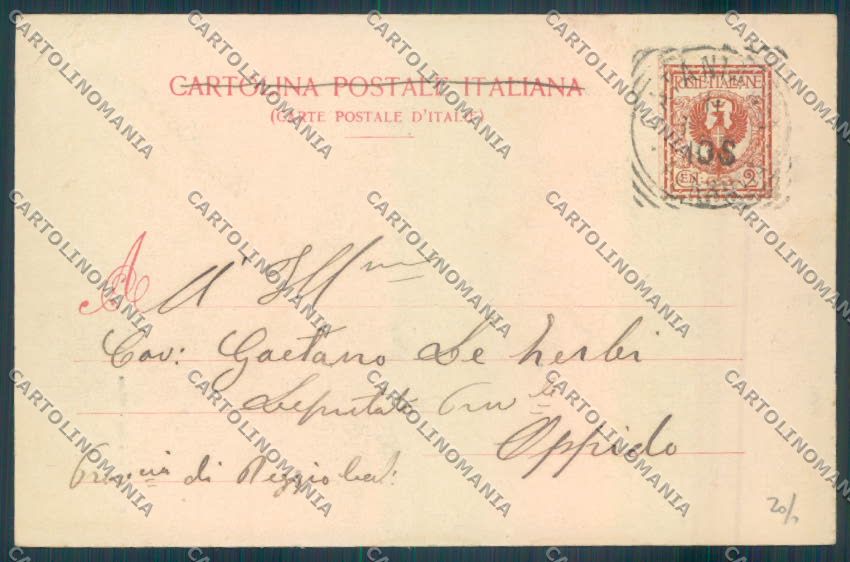 CARTOLINA POSTALE ITALIANA
(CARTE POSTALE D'ITALIE)
POSTE ITALIANE
CEN. 2
A
All' Ill<sup>mo</sup>
Cav: Gaetano De Zerbi
Deputato Prov<sup>le</sup>
Oppido
Prov<sup>cia</sup> di Reggio Cal:
20/
CARTOLINOMANIA